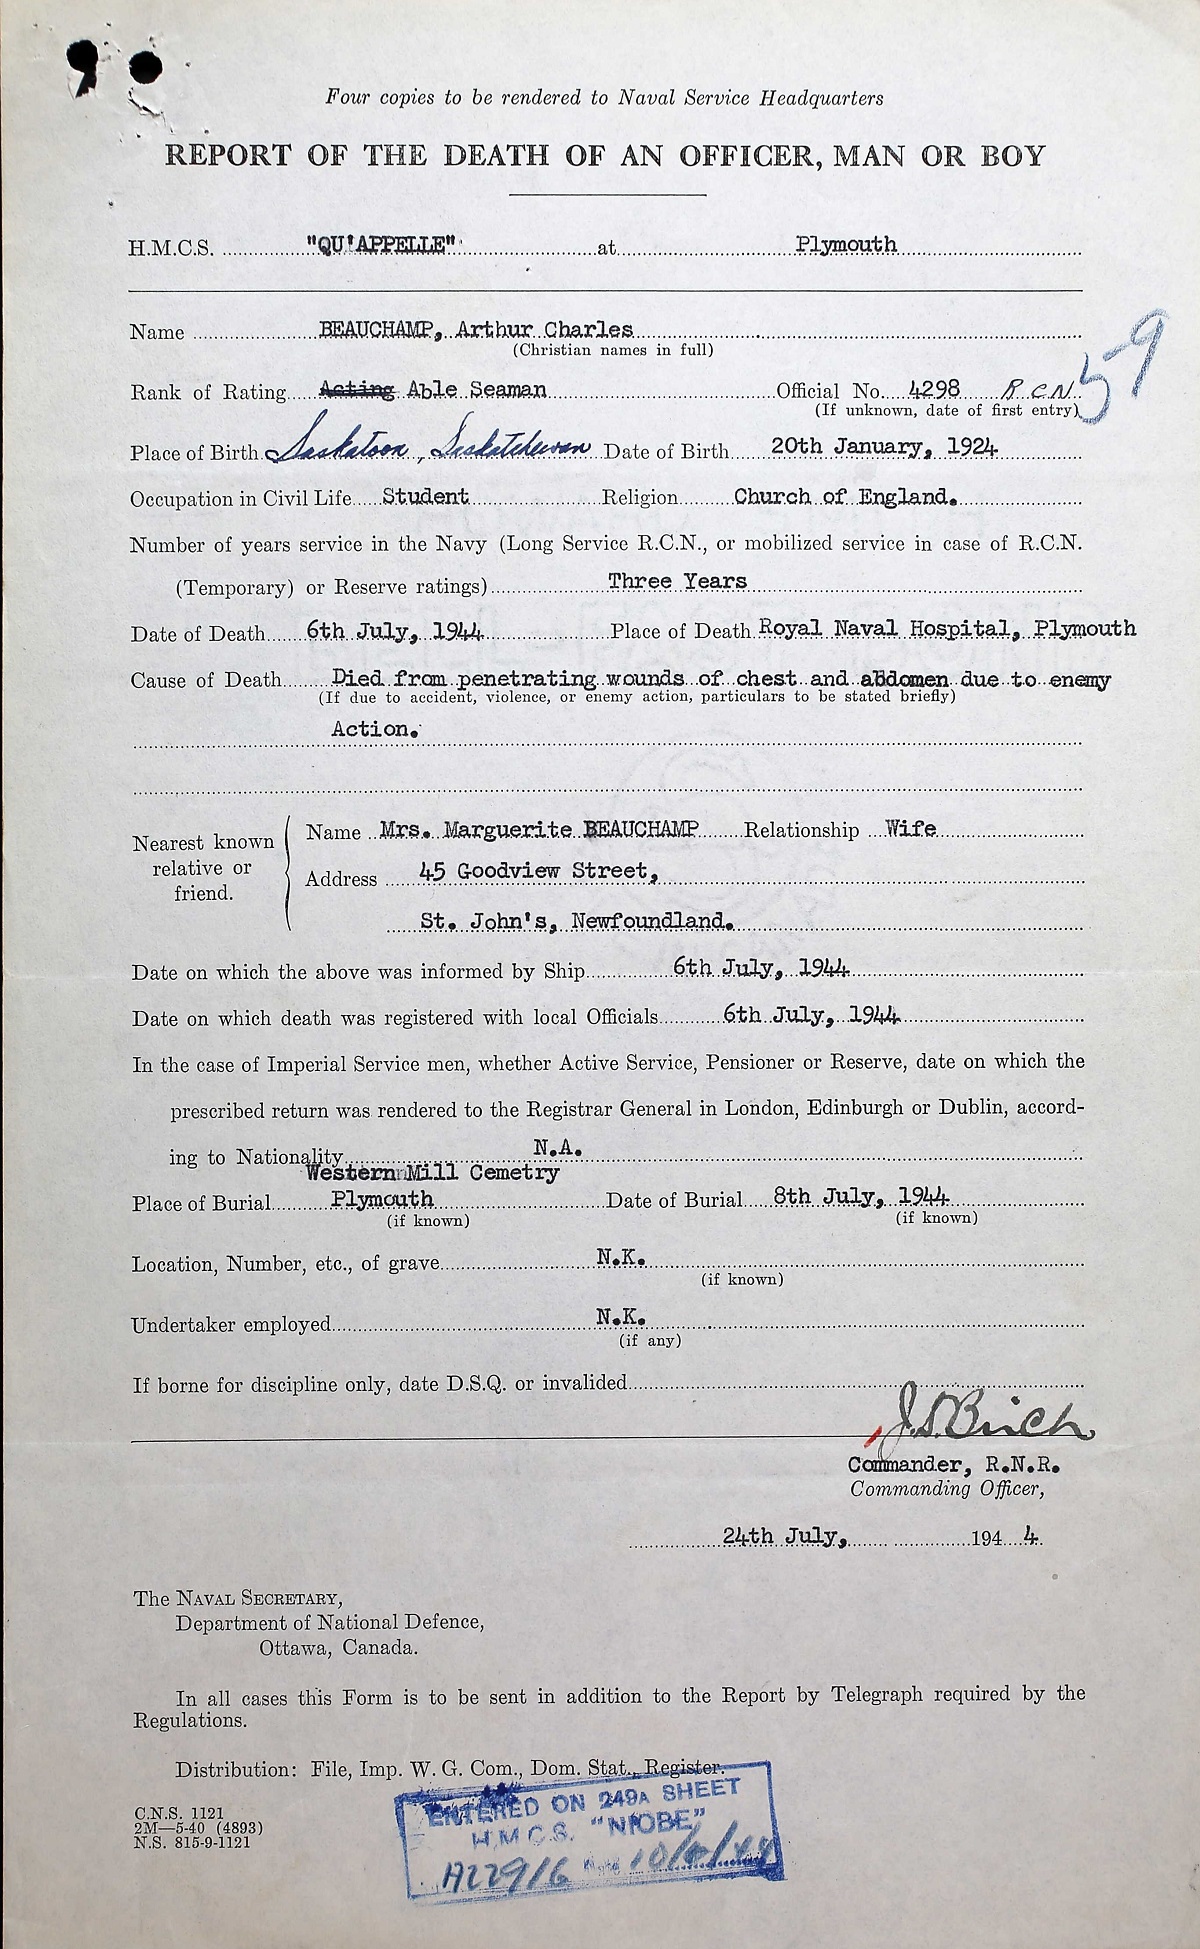 Four copies to be rendered to Naval Service Headquarters
REPORT OF THE DEATH OF AN OFFICER, MAN OR BOY
H.M.C.S. "QU'APPELLE" at Plymouth
Name BEAUCHAMP, Arthur Charles
(Christian names in full)
59
Rank of Rating Acting Able Seaman Official No. 4298 R.C.N.
(If unknown, date of first entry)
Place of Birth Saskatoon, Saskatchewan Date of Birth 20th January, 1924
Occupation in Civil Life Student Religion Church of England.
Number of years service in the Navy (Long Service R.C.N., or mobilized service in case of R.C.N.
(Temporary) or Reserve ratings) Three Years
Date of Death 6th July, 1944 Place of Death Royal Naval Hospital, Plymouth
Cause of Death Died from penetrating wounds of chest and abdomen due to enemy
(If due to accident, violence, or enemy action, particulars to be stated briefly)
Action.
Nearest known relative or friend.
Name Mrs. Marguerite BEAUCHAMP Relationship Wife
Address 45 Goodview Street,
St. John's, Newfoundland.
Date on which the above was informed by Ship 6th July, 1944
Date on which death was registered with local Officials 6th July, 1944
In the case of Imperial Service men, whether Active Service, Pensioner or Reserve, date on which the
prescribed return was rendered to the Registrar General in London, Edinburgh or Dublin, accord-
ing to Nationality N.A.
Western Mill Cemetry
Place of Burial Plymouth Date of Burial 8th July, 1944
(if known) (if known)
Location, Number, etc., of grave N.K.
(if known)
Undertaker employed N.K.
(if any)
If borne for discipline only, date D.S.Q. or invalided
J.D. Birch
Commander, R.N.R.
Commanding Officer,
24th July, 1944.
The NAVAL SECRETARY,
Department of National Defence,
Ottawa, Canada.
In all cases this Form is to be sent in addition to the Report by Telegraph required by the
Regulations.
Distribution: File, Imp. W. G. Com., Dom. Stat., Register.
C.N.S. 1121
2M—5-40 (4893)
N.S. 815-9-1121
ENTERED ON 249A SHEET
H.M.C.S. "NIOBE"
A22916